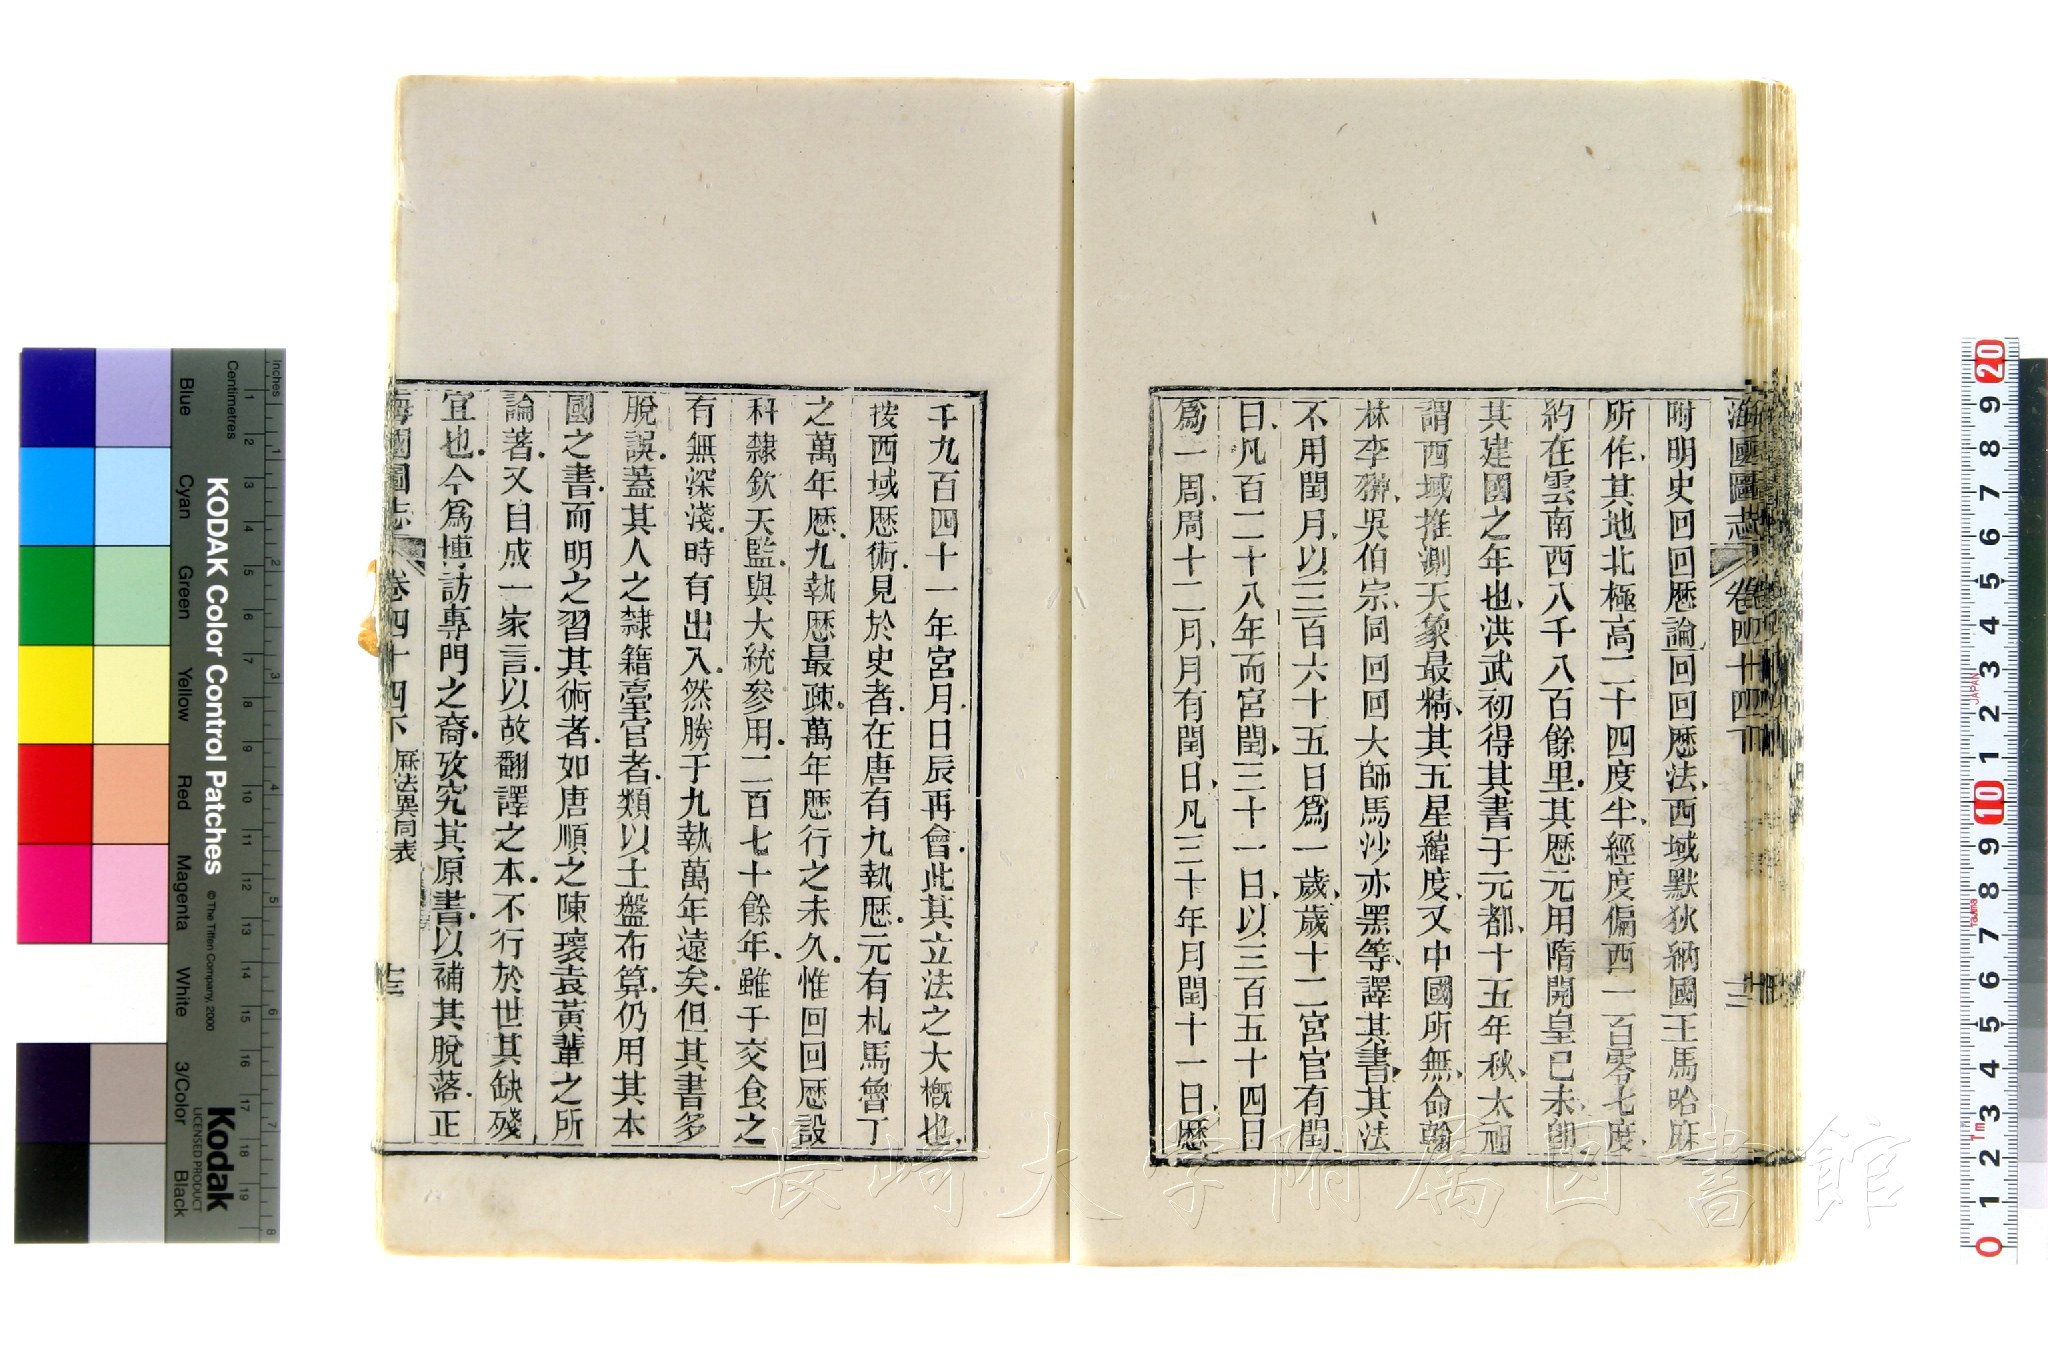 海國圖志 卷四十四下
附明史回回歴論回回歴法西域默狄納國王馬哈麻
所作其地北極高二十四度半經度偏西一百零七度
約在雲南西八千八百餘里其歴元用隋開皇己未卽
其建國之年也洪武初得其書于元都十五年秋太祖
謂西域推測天象最精其五星緯度又中國所無命翰
林李翀吳伯宗同回回大師馬沙亦黑等譯其書其法
不用閏月以三百六十五日爲一歲歲十二宮宮有閏
日凡百二十八年而宮閏三十一日以三百五十四日
爲一周周十二月月有閏日凡三十年月閏十一日歴
千九百四十一年宮月日辰再會此其立法之大槪也
按西域歴術見於史者在唐有九執歴元有札馬魯丁
之萬年歴九執歴最疎萬年歴行之未久惟回回歴設
科隸欽天監與大統參用二百七十餘年雖于交食之
有無深淺時有出入然勝于九執萬年遠矣但其書多
脫誤蓋其人之隸籍臺官者類以土盤布算仍用其本
國之書而明之習其術者如唐順之陳壤袁黃輩之所
論著又自成一家言以故翻譯之本不行於世其缺殘
宜也今爲博訪專門之裔攷究其原書以補其脫落正
海國圖志 卷四十四下 厤法異同表 十三
長崎大学附属図書館
KODAK Color Control Patches
© The Tiffen Company, 2000
Kodak
LICENSED PRODUCT
Inches
Centimetres
Blue
Cyan
Green
Yellow
Red
Magenta
White
3/Color
Black
1 2 3 4 5 6 7 8
1 2 3 4 5 6 7 8 9 10 11 12 13 14 15 16 17 18 19
0 1 2 3 4 5 6 7 8 9 10 1 2 3 4 5 6 7 8 9 20
JAPAN